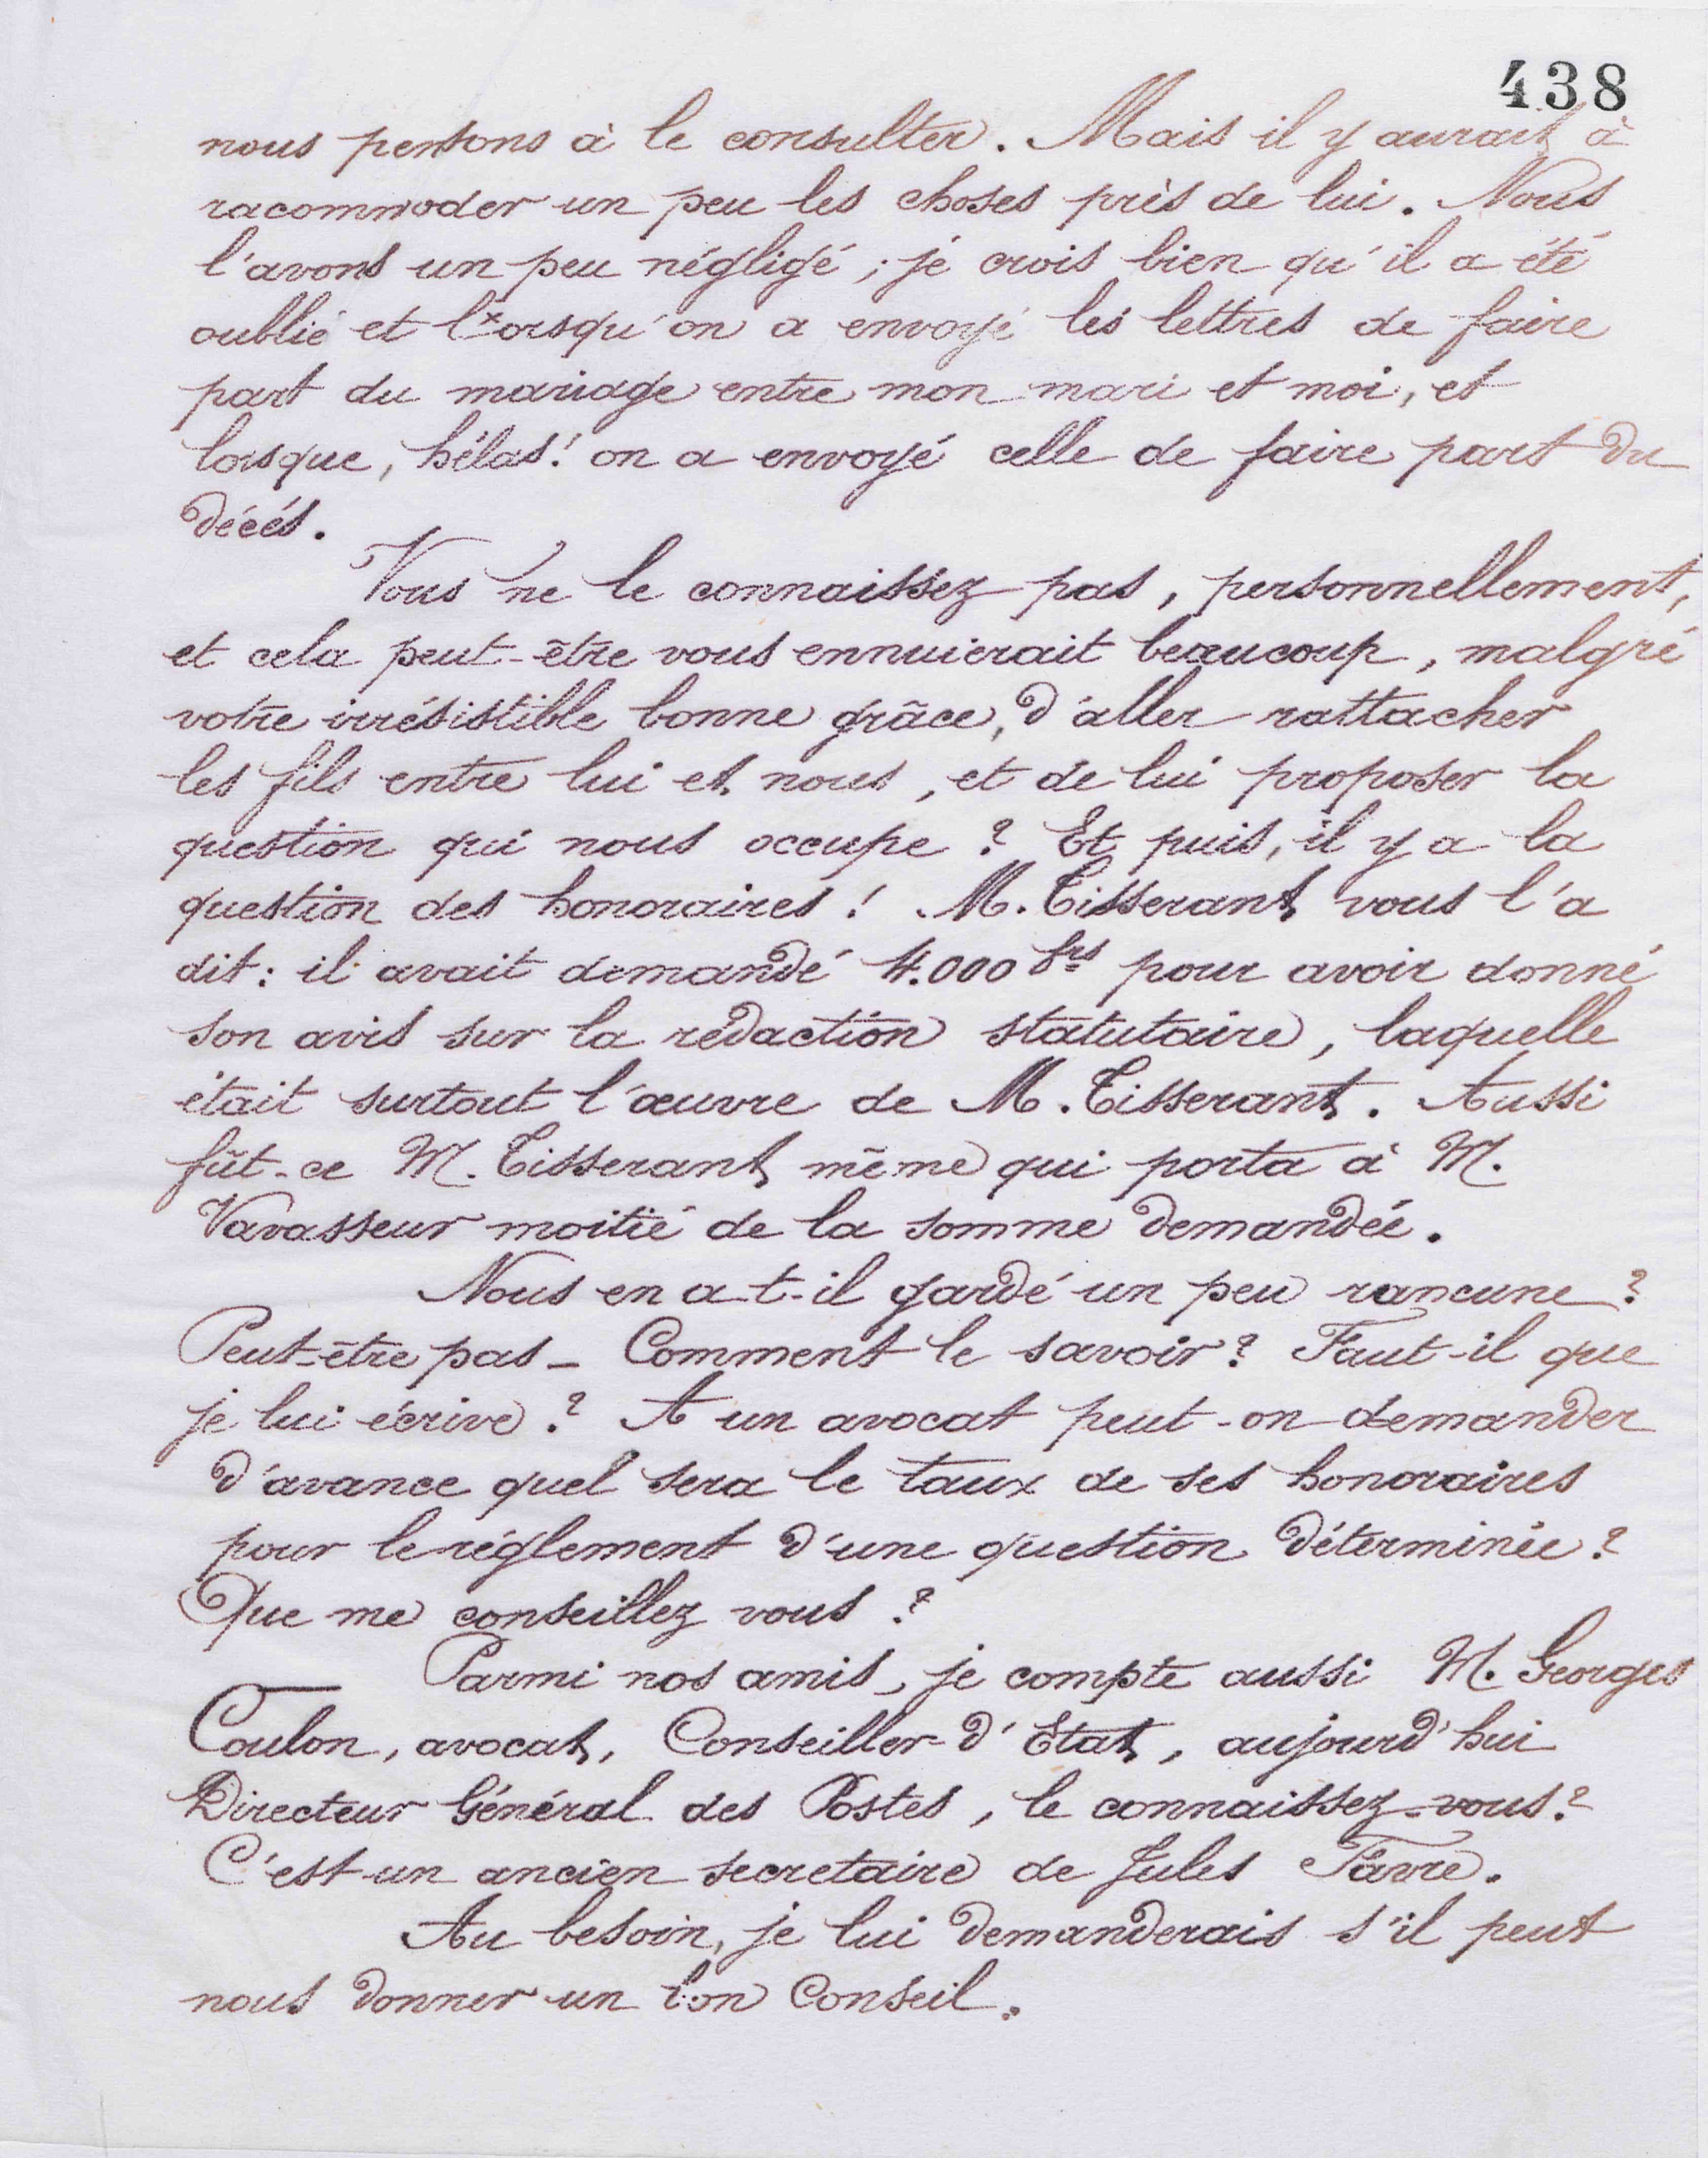 438
nous pensons à le consulter. Mais il y aurait à
racommoder un peu les choses près de lui. Nous
l'avons un peu négligé ; je crois bien qu'il a été
oublié et lorsqu'on a envoyé les lettres de faire
part du mariage entre mon mari et moi, et
lorsque, hélas ! on a envoyé celle de faire part du
décés.
Vous ne le connaissez pas, personnellement,
et cela peut-être vous ennuierait beaucoup, malgré
votre irrésistible bonne grâce, d'aller rattacher
les fils entre lui et nous, et de lui proposer la
question qui nous occupe ? Et puis, il y a la
question des honoraires ! M. Tisserant vous l'a
dit : il avait demandé 4.000 frs pour avoir donné
son avis sur la rédaction statutaire, laquelle
était surtout l'œuvre de M. Tisserant. Aussi
fût-ce M. Tisserant même qui porta à M.
Vavasseur moitié de la somme demandée.
Nous en a-t-il gardé un peu rancune ?
Peut-être pas - Comment le savoir ? Faut-il que
je lui écrive ? A un avocat peut-on demander
d'avance quel sera le taux de ses honoraires
pour le réglement d'une question déterminée ?
Que me conseillez vous ?
Parmi nos amis, je compte aussi M. Georges
Coulon, avocat, Conseiller d'Etat, aujourd'hui
Directeur Général des Postes, le connaissez-vous ?
C'est un ancien secretaire de Jules Favre.
Au besoin, je lui demanderais s'il peut
nous donner un bon Conseil.